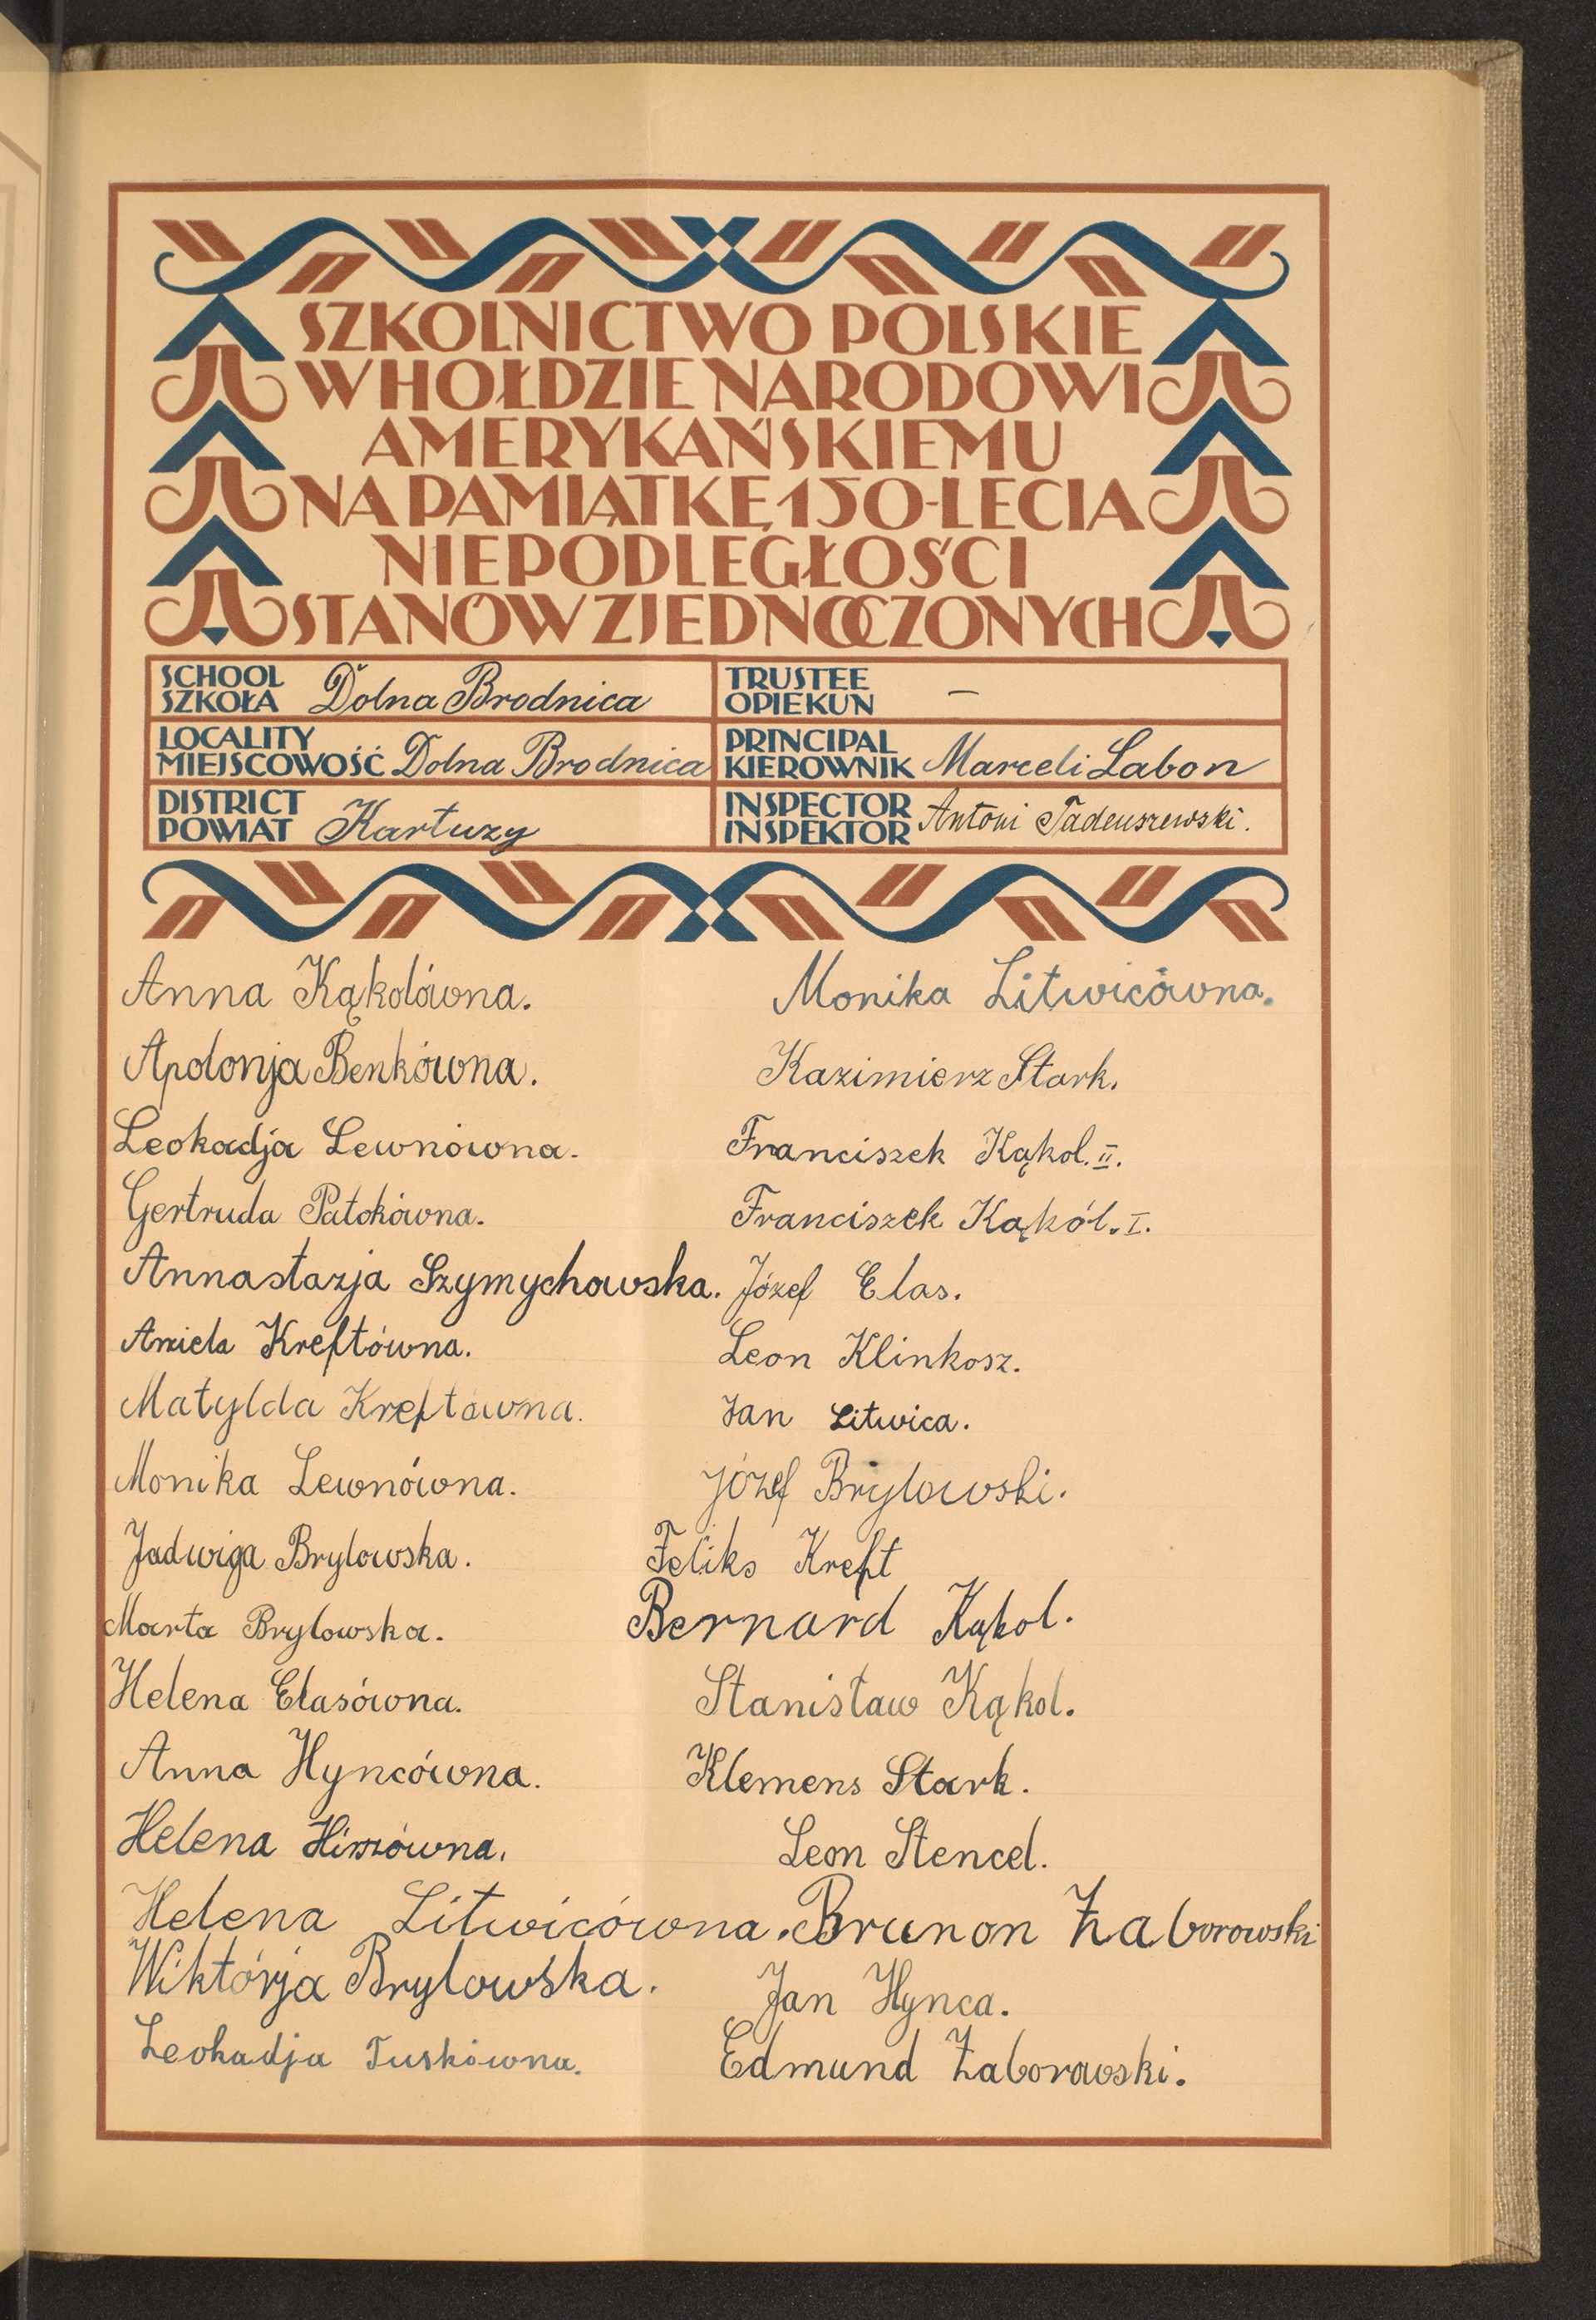 SZKOLNICTWO POLSKIE
W HOŁDZIE NARODOWI
AMERYKAŃSKIEMU
NA PAMIĄTKĘ 150-LECIA
NIEPODLEGŁOŚCI
STANÓW ZJEDNOCZONYCH
SCHOOL
SZKOŁA Dolna Brodnica
TRUSTEE
OPIEKUN —
LOCALITY
MIEJSCOWOŚĆ Dolna Brodnica
PRINCIPAL
KIEROWNIK Marceli Labon
DISTRICT
POWIAT Kartuzy
INSPECTOR
INSPEKTOR Antoni Tadeuszewski.
Anna Kąkolówna.
Apolonja Benkówna.
Leokadja Lewnówna.
Gertruda Patokówna.
Annastazja Szymychowska.
Aniela Kreftówna.
Matylda Kreftówna.
Monika Lewnówna.
Jadwiga Brylowska.
Marta Brylowska.
Helena Elasówna.
Anna Hyncówna.
Helena
Helena Litwicówna.
Wiktórja Brylowska.
Leokadja Tuskówna.
Monika Litwicówna.
Kazimierz Stark.
Franciszek Kąkol. II.
Franciszek Kąkól. I.
Józef Elas.
Leon Klinkosz.
Jan Litwica.
Józef Brylowski.
Feliks Kreft
Bernard Kąkol.
Stanisław Kąkol.
Klemens Stark.
Leon Stencel.
Brunon Zaborowski
Jan Hynca.
Edmund Zaborowski.